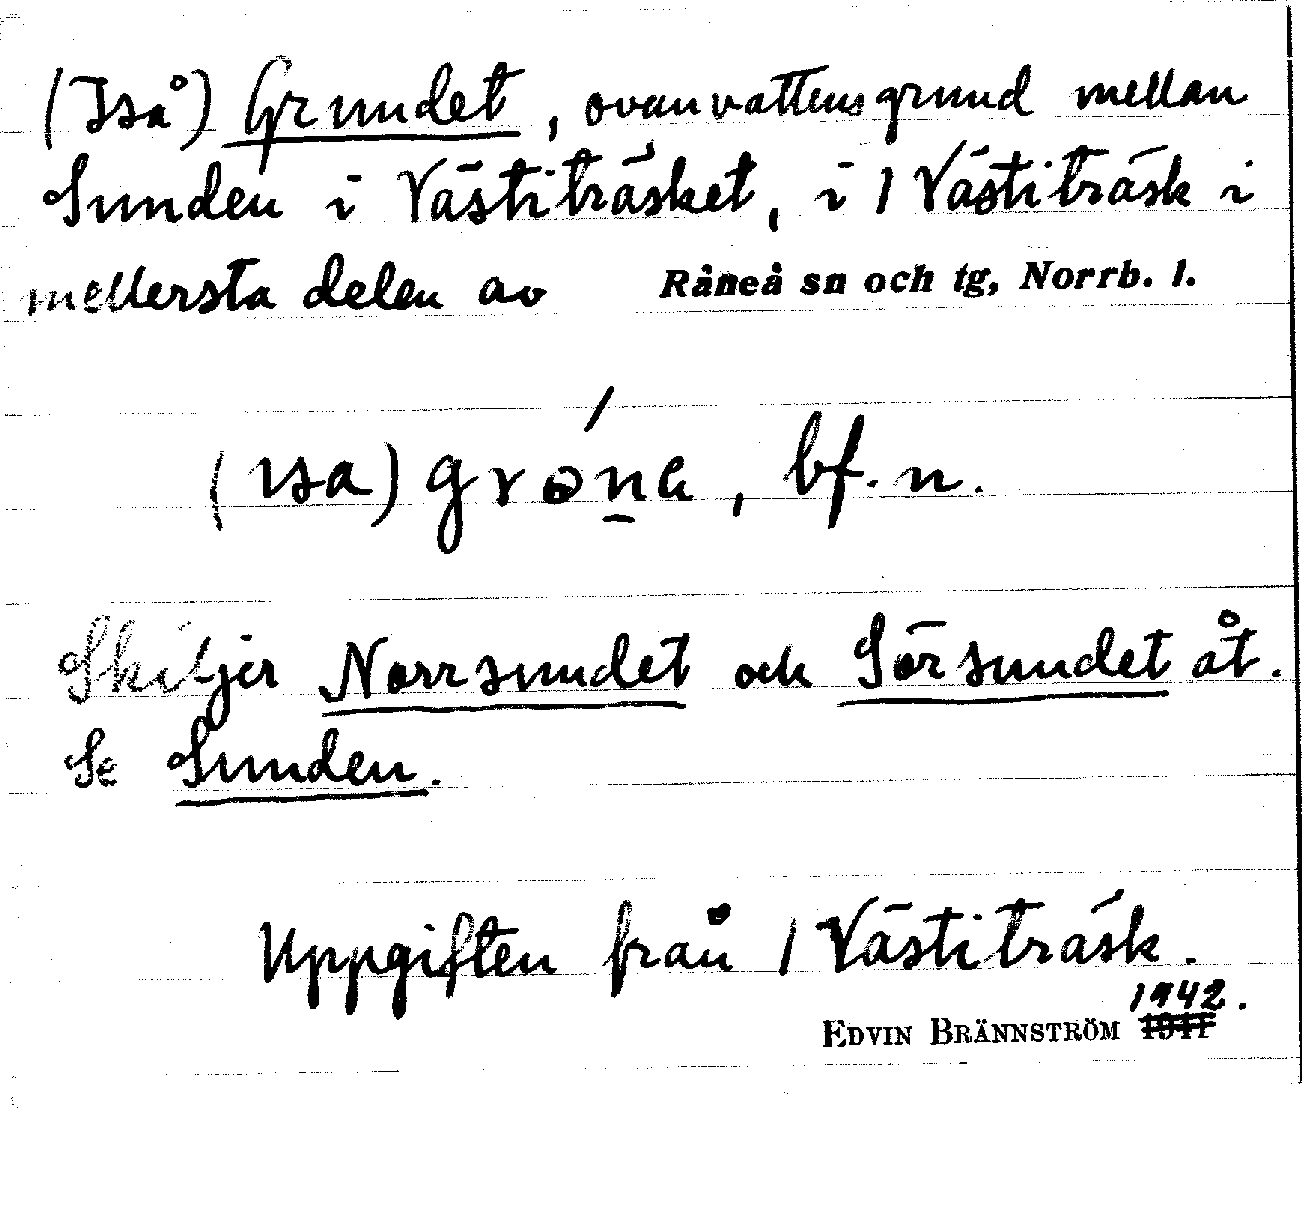 (Iså) Grundet, ovanvattensgrund mellan
Sunden i Västiträsket, i 1 Västiträsk i
mellersta delen av Råneå sn och tg, Norrb. l.
(ɪsa) grọ́n̠a, bf. n.
Skiljer Norrsundet och Sörsundet åt.
Se Sunden.
Uppgiften från 1 Västiträsk.
1942.
EDVIN BRÄNNSTRÖM 1941